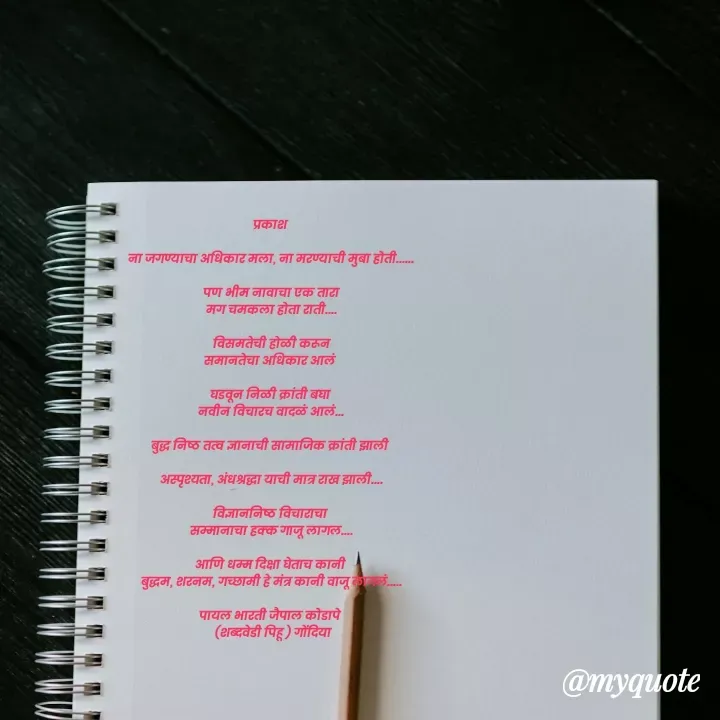 प्रकाश
ना जगण्याचा अधिकार मला, ना मरण्याची मुबा होती......
पण भीम नावाचा एक तारा
मग चमकला होता राती....
विसमतेची होळी करून
समानतेचा अधिकार आलं
घडवून निळी क्रांती बघा
नवीन विचारच वादळं आलं...
बुद्ध निष्ठ तत्व ज्ञानाची सामाजिक क्रांती झाली
अस्पृश्यता, अंधश्रद्धा याची मात्र राख झाली....
विज्ञाननिष्ठ विचाराचा
सम्मानाचा हक्क गाजू लागल....
आणि धम्म दिक्षा घेताच कानी
बुद्धम, शरनम, गच्छामी हे मंत्र कानी वाजू
पायल भारती जैपाल कोडापे
(शब्दवेडी पिहू ) गोंदिया
@myquote